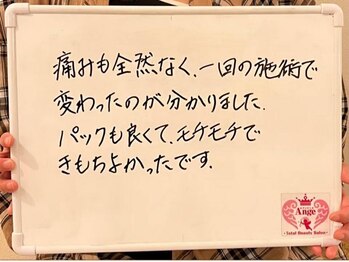 痛みも全然なく、一回の施術で
変わったのが分かりました.
パックも良くて、モチモチで
きもちよかったです.
Ange
Total Beauty Salon